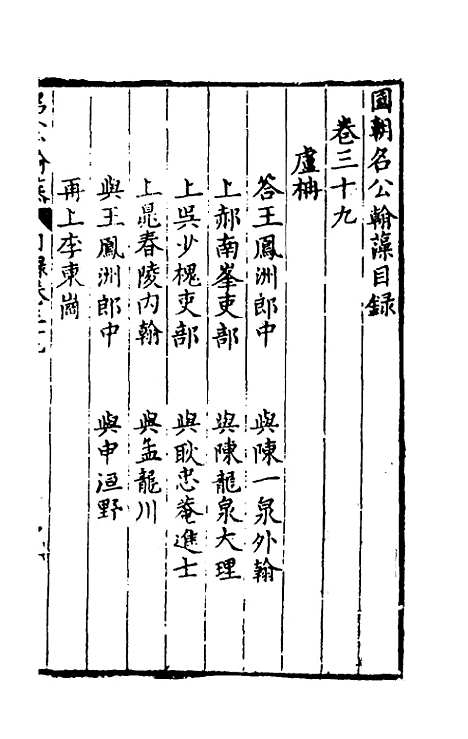 國朝名公翰藻目録
卷三十九
盧柟
答王鳳洲郎中　與陳一泉外翰
上郝南峯吏部　與陳龍泉大理
上吳少槐吏部　與耿忠菴進士
上晁春陵内翰　與孟龍川
與王鳳洲郎中　與申洹野
再上李東崗